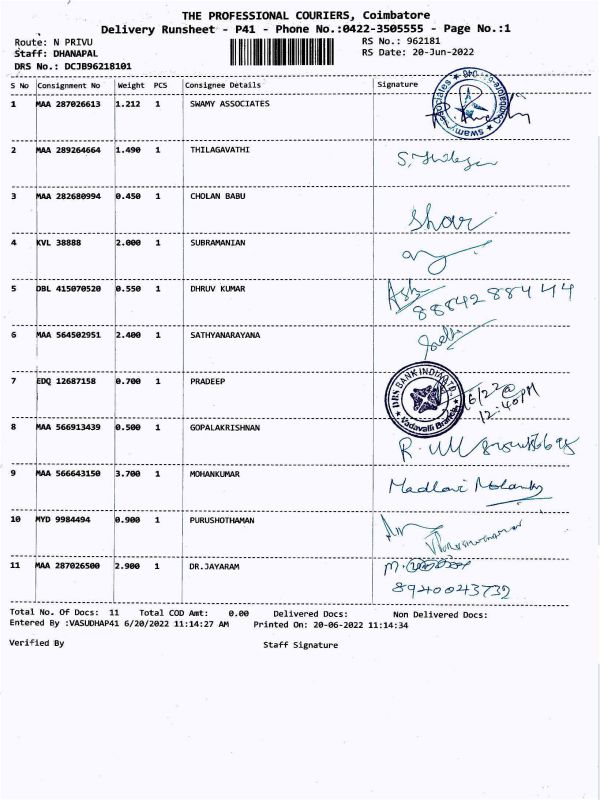 THE PROFESSIONAL COURIERS, Coimbatore
Delivery Runsheet - P41 - Phone No.:0422-3505555 - Page No.:1
Route: N PRIVU RS No.: 962181
Staff: DHANAPAL RS Date: 20-Jun-2022
DRS No.: DCJB96218101
S No Consignment No Weight PCS Consignee Details Signature
1 MAA 287026613 1.212 1 SWAMY ASSOCIATES
2 MAA 289264664 1.490 1 THILAGAVATHI
3 MAA 282680994 0.450 1 CHOLAN BABU
4 KVL 38888 2.000 1 SUBRAMANIAN
5 DBL 415070520 0.550 1 DHRUV KUMAR
8884288444
6 MAA 564502951 2.400 1 SATHYANARAYANA
7 EDQ 12687158 0.700 1 PRADEEP
DBS BANK INDIA LTD.
Vadavalli Branch
12:40PM
8 MAA 566913439 0.500 1 GOPALAKRISHNAN
9 MAA 566643150 3.700 1 MOHANKUMAR
10 MYD 9984494 0.900 1 PURUSHOTHAMAN
11 MAA 287026500 2.900 1 DR.JAYARAM
8940043732
Total No. Of Docs: 11 Total COD Amt: 0.00 Delivered Docs: Non Delivered Docs:
Entered By :VASUDHAP41 6/20/2022 11:14:27 AM Printed On: 20-06-2022 11:14:34
Verified By Staff Signature